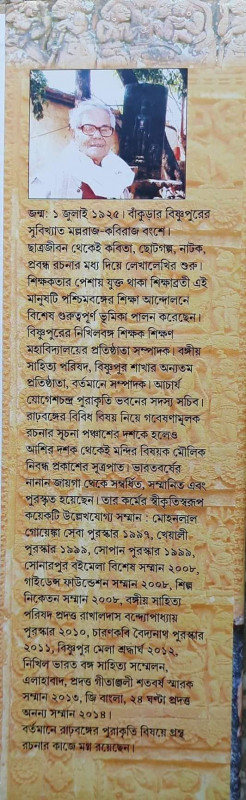 জন্ম: ১ জুলাই ১৯২৫। বাঁকুড়ার বিষ্ণুপুরের
সুবিখ্যাত মল্লরাজ-কবিরাজ বংশে।
ছাত্রজীবন থেকেই কবিতা, ছোটগল্প, নাটক,
প্রবন্ধ রচনার মধ্য দিয়ে লেখালেখির শুরু।
শিক্ষকতার পেশায় যুক্ত থাকা শিক্ষাব্রতী এই
মানুষটি পশ্চিমবঙ্গের শিক্ষা আন্দোলনে
বিশেষ গুরুত্বপূর্ণ ভূমিকা পালন করেছেন।
বিষ্ণুপুরের নিখিলবঙ্গ শিক্ষক শিক্ষণ
মহাবিদ্যালয়ের প্রতিষ্ঠাতা সম্পাদক। বঙ্গীয়
সাহিত্য পরিষদ, বিষ্ণুপুর শাখার অন্যতম
প্রতিষ্ঠাতা, বর্তমানে সম্পাদক। আচার্য
যোগেশচন্দ্র পুরাকৃতি ভবনের সদস্য সচিব।
রাঢ়বঙ্গের বিবিধ বিষয় নিয়ে গবেষণামূলক
রচনার সূচনা পঞ্চাশের দশকে হলেও
আশির দশক থেকেই মন্দির বিষয়ক মৌলিক
নিবন্ধ প্রকাশের সূত্রপাত। ভারতবর্ষের
নানান জায়গা থেকে সম্বর্ধিত, সম্মানিত এবং
পুরস্কৃত হয়েছেন। তার কর্মের স্বীকৃতিস্বরূপ
কয়েকটি উল্লেখযোগ্য সম্মান : মোহনলাল
গোয়েঙ্কা সেবা পুরস্কার ১৯৯৭, খেয়ালী
পুরস্কার ১৯৯৯, সোপান পুরস্কার ১৯৯৯,
সোনারপুর বইমেলা বিশেষ সম্মান ২০০৮,
গাইডেন্স ফাউন্ডেশন সম্মান ২০০৮, শিল্প
নিকেতন সম্মান ২০০৮, বঙ্গীয় সাহিত্য
পরিষদ প্রদত্ত রাখালদাস বন্দ্যোপাধ্যায়
পুরস্কার ২০১০, চারণকবি বৈদ্যনাথ পুরস্কার
২০১১, বিষ্ণুপুর মেলা শ্রদ্ধার্ঘ ২০১২,
নিখিল ভারত বঙ্গ সাহিত্য সম্মেলন,
এলাহাবাদ, প্রদত্ত গীতাঞ্জলী শতবর্ষ স্মারক
সম্মান ২০১৩, জি বাংলা, ২৪ ঘণ্টা প্রদত্ত
অনন্য সম্মান ২০১৪।
বর্তমানে রাঢ়বঙ্গের পুরাকৃতি বিষয়ে গ্রন্থ
রচনার কাজে মগ্ন রয়েছেন।